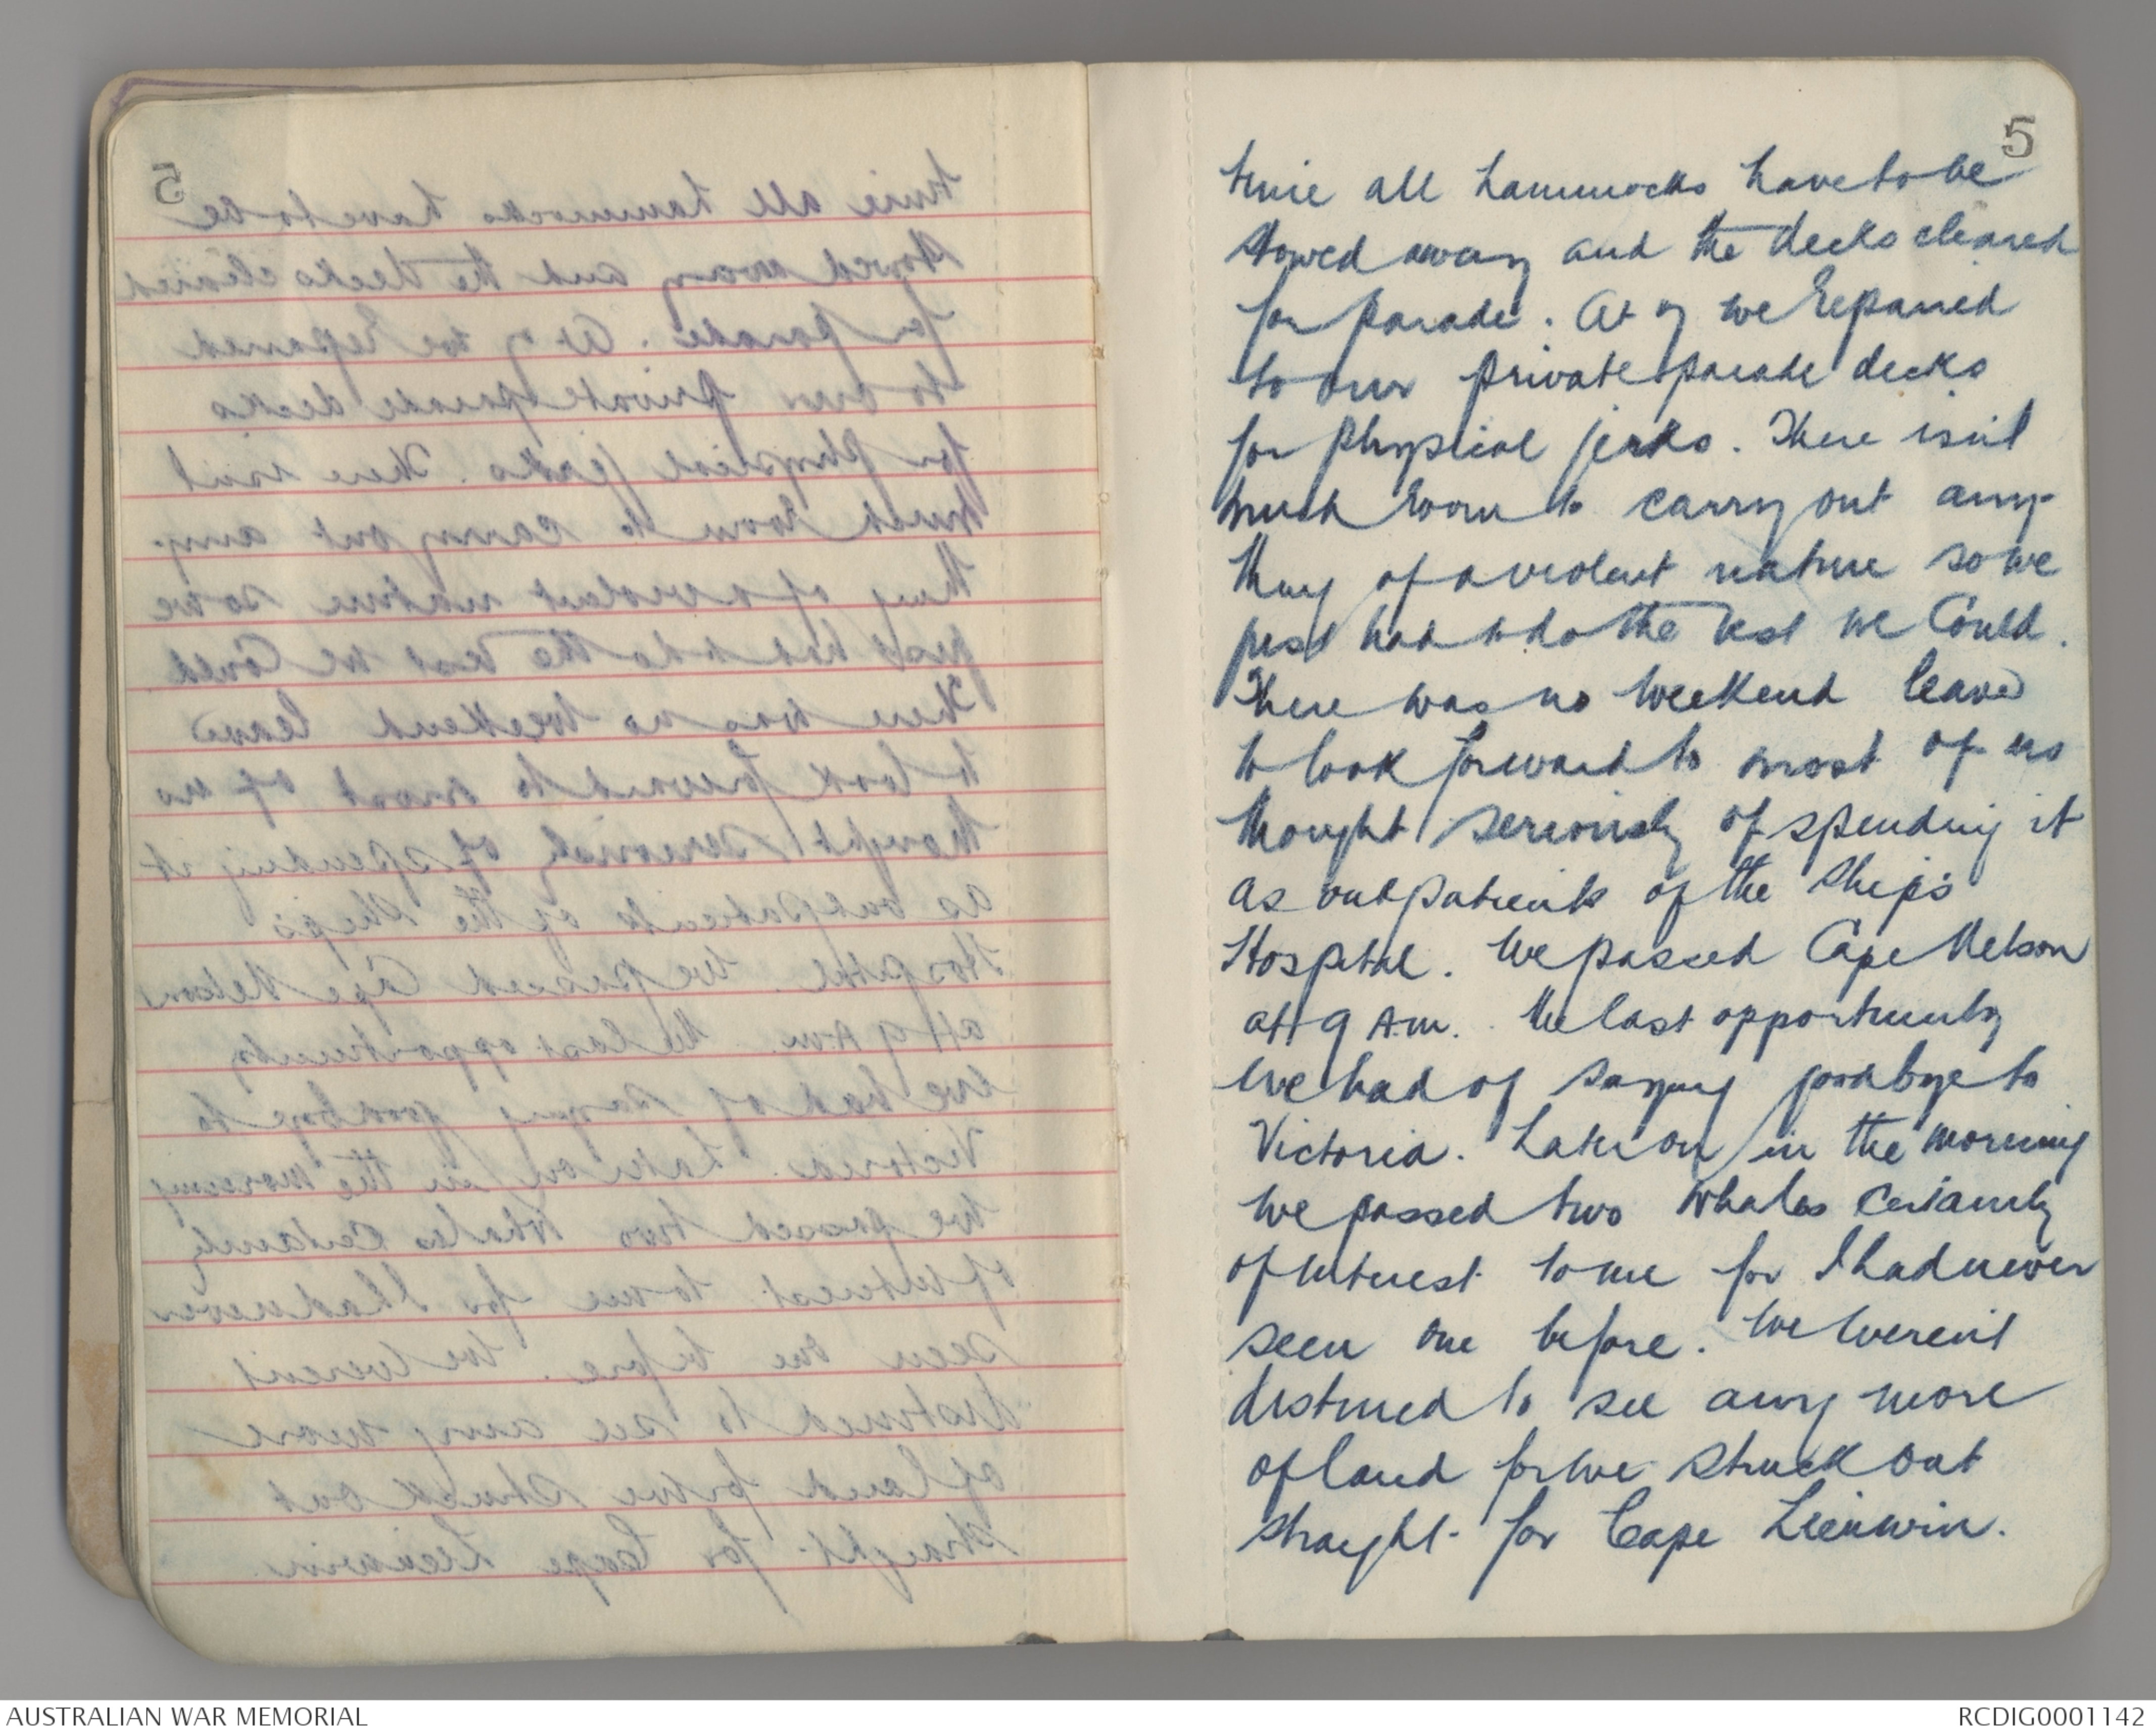 5
time all hammocks have to be
stowed away and the decks cleared
for parade. At 7 we repaired
to our private parade decks
for physical jerks. There isn't
much room to carry out any-
thing of a violent nature so we
just had to do the best we could.
There was no weekend leave
to look forward to most of us
thought seriously of spending it
as outpatients of the ship's
Hospital. We passed Cape Nelson
at 9 A.m. The last opportunity
we had of saying goodbye to
Victoria. Later on in the morning
we passed two whales certainly
of interest to me for I had never
seen one before. We weren't
destined to see any more
of land for we struck out
straight for Cape Lieuwin.
AUSTRALIAN WAR MEMORIAL
RCDIG0001142